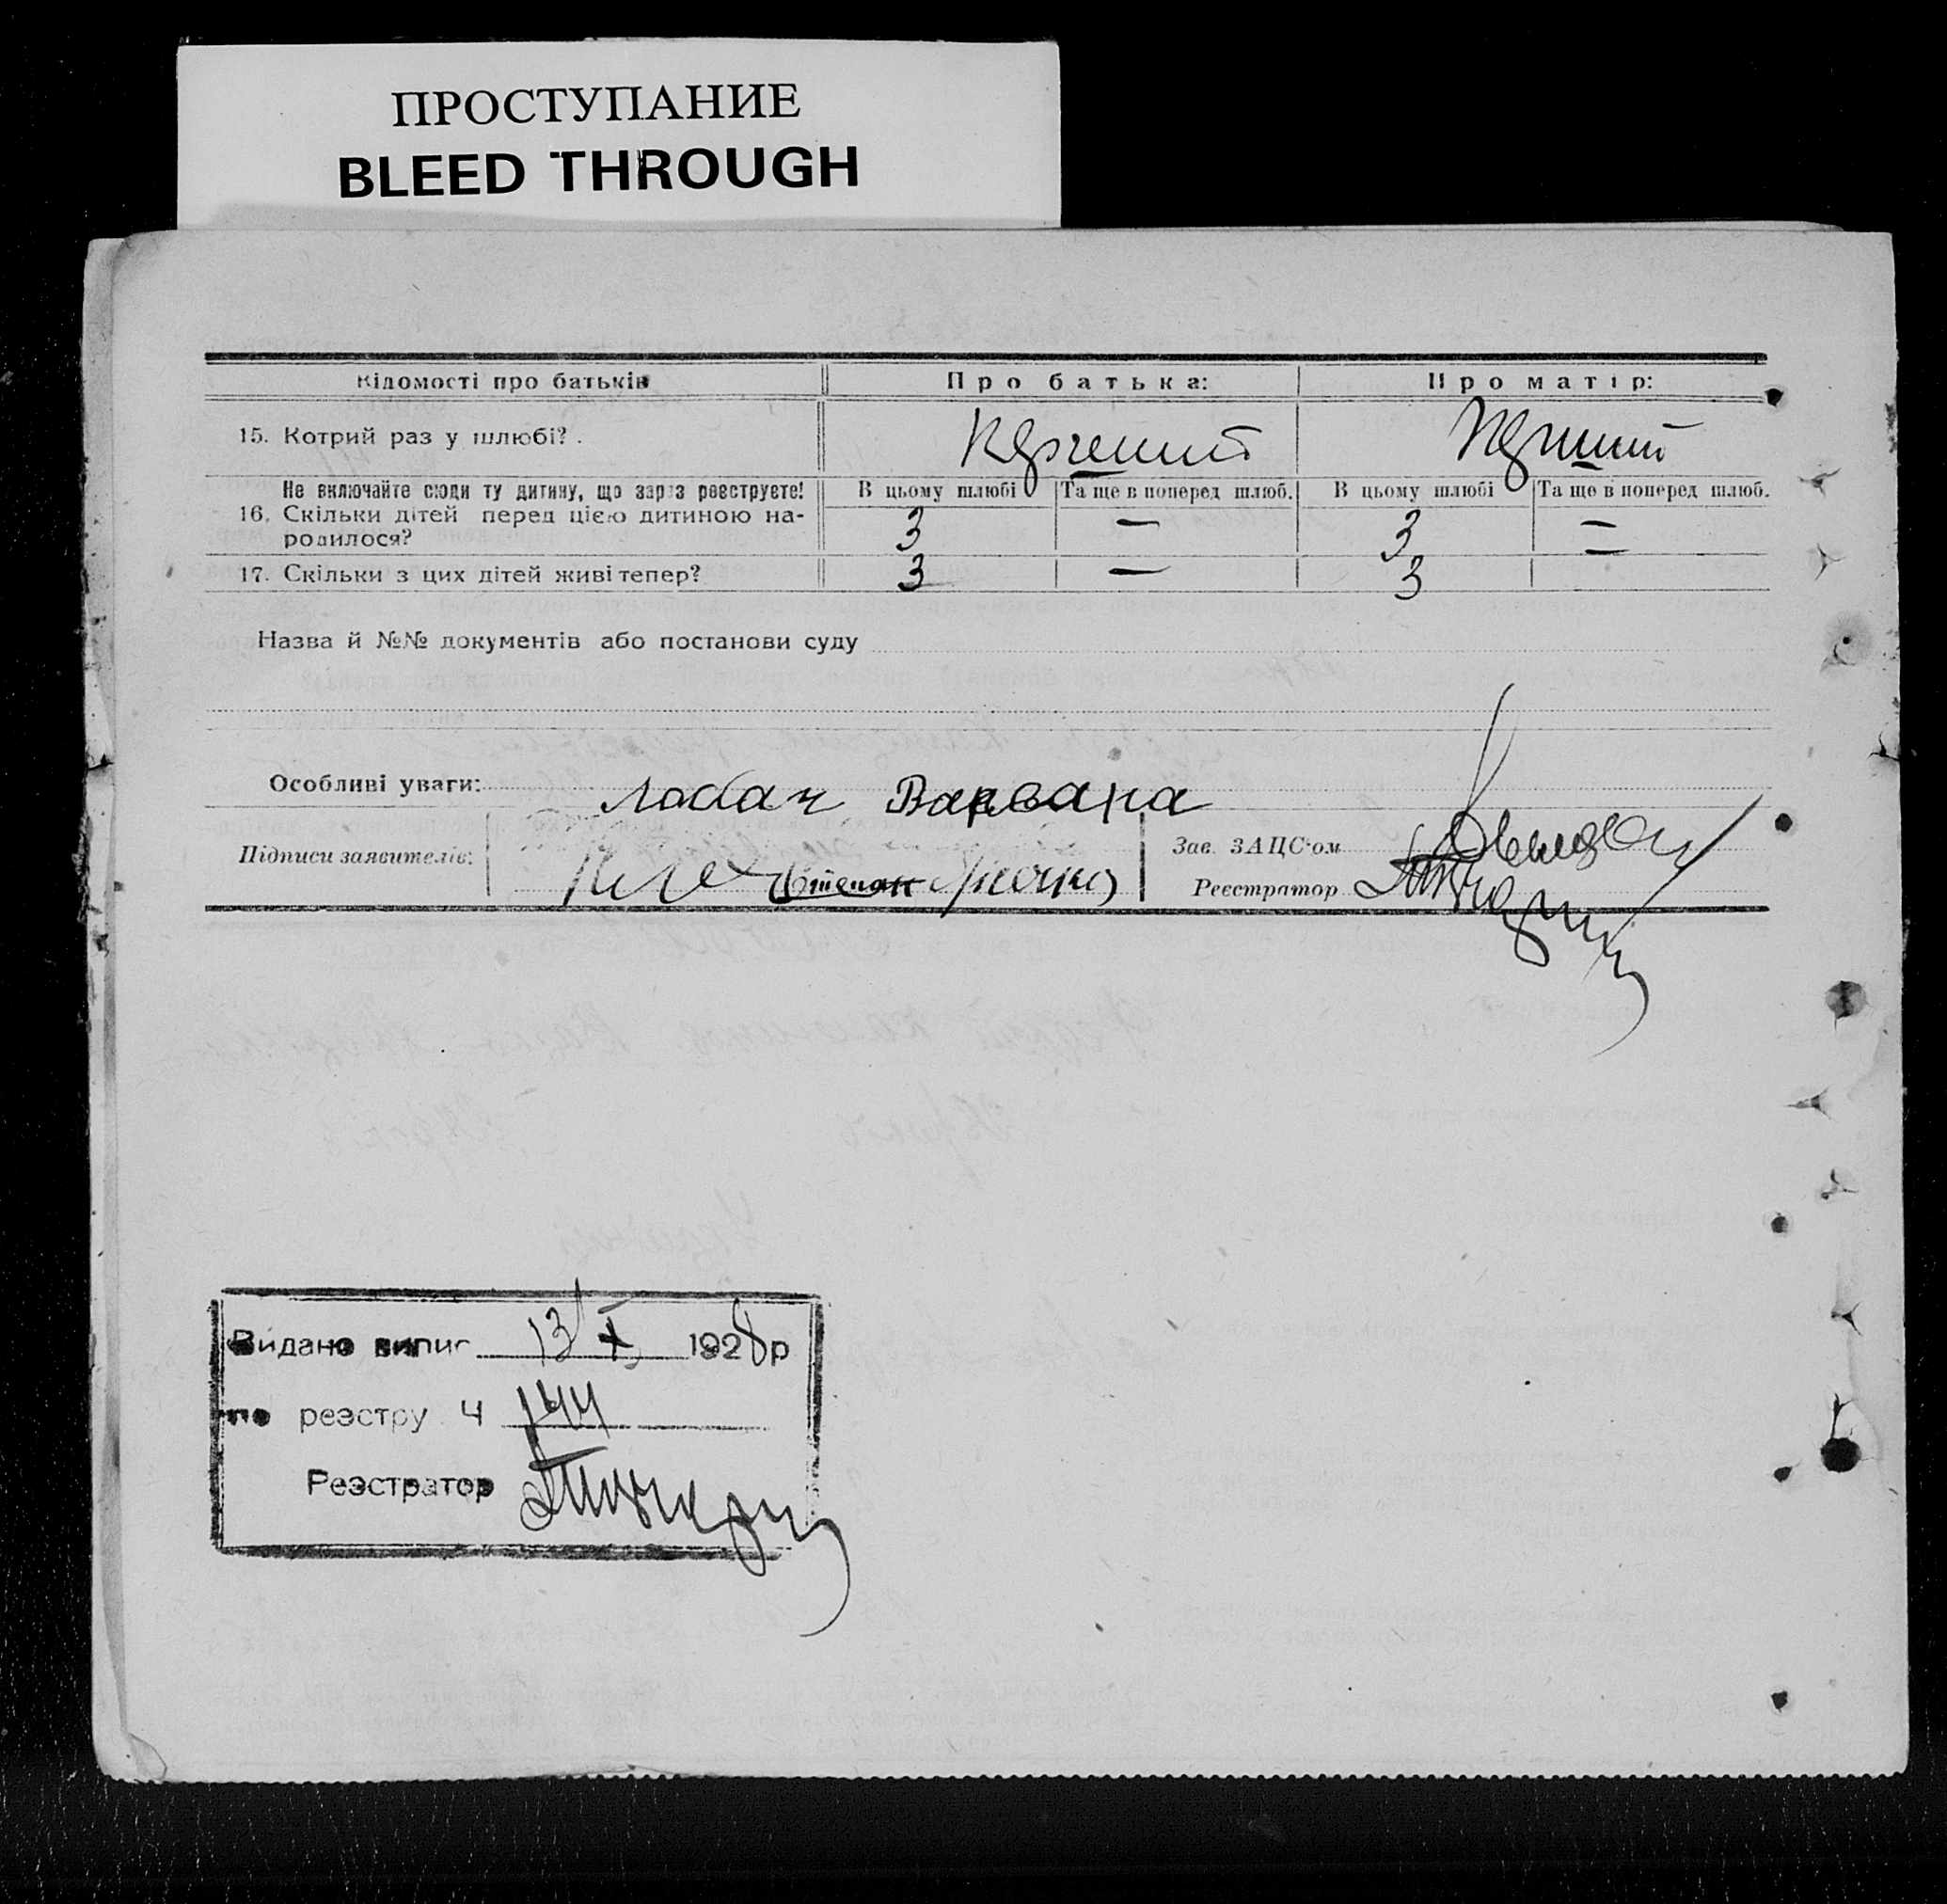 ПРОСТУПАНИЕ
BLEED THROUGH
Відомості про батьків Про батька: Про матір:
15. Котрий раз у шлюбі? Перший Перший
Не включайте сюди ту дитину, що зараз реєструєте! В цьому шлюбі Та ще в поперед шлюб. В цьому шлюбі Та ще в поперед шлюб.
16. Скільки дітей перед цією дитиною на-
родилося? 3 — 3 —
17. Скільки з цих дітей живі тепер? 3 — 3 —
Назва й №№ документів або постанови суду
Особливі уваги: Лобач Варвара
Підписи заявителів: Степан
Зав. ЗАЦС'ом
Реєстратор
Видано випис 13/X 1928р
по реэстру Ч 144
Реэстратор